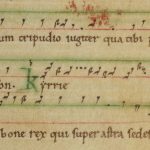 um tripudio iugiter qua tibi
son. Kyrrie
bone rex qui super astra sedes